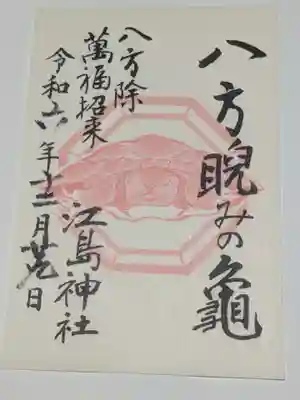 八方睨みの龜
八方除
萬福招来
江島神社
令和六年十二月廿九日